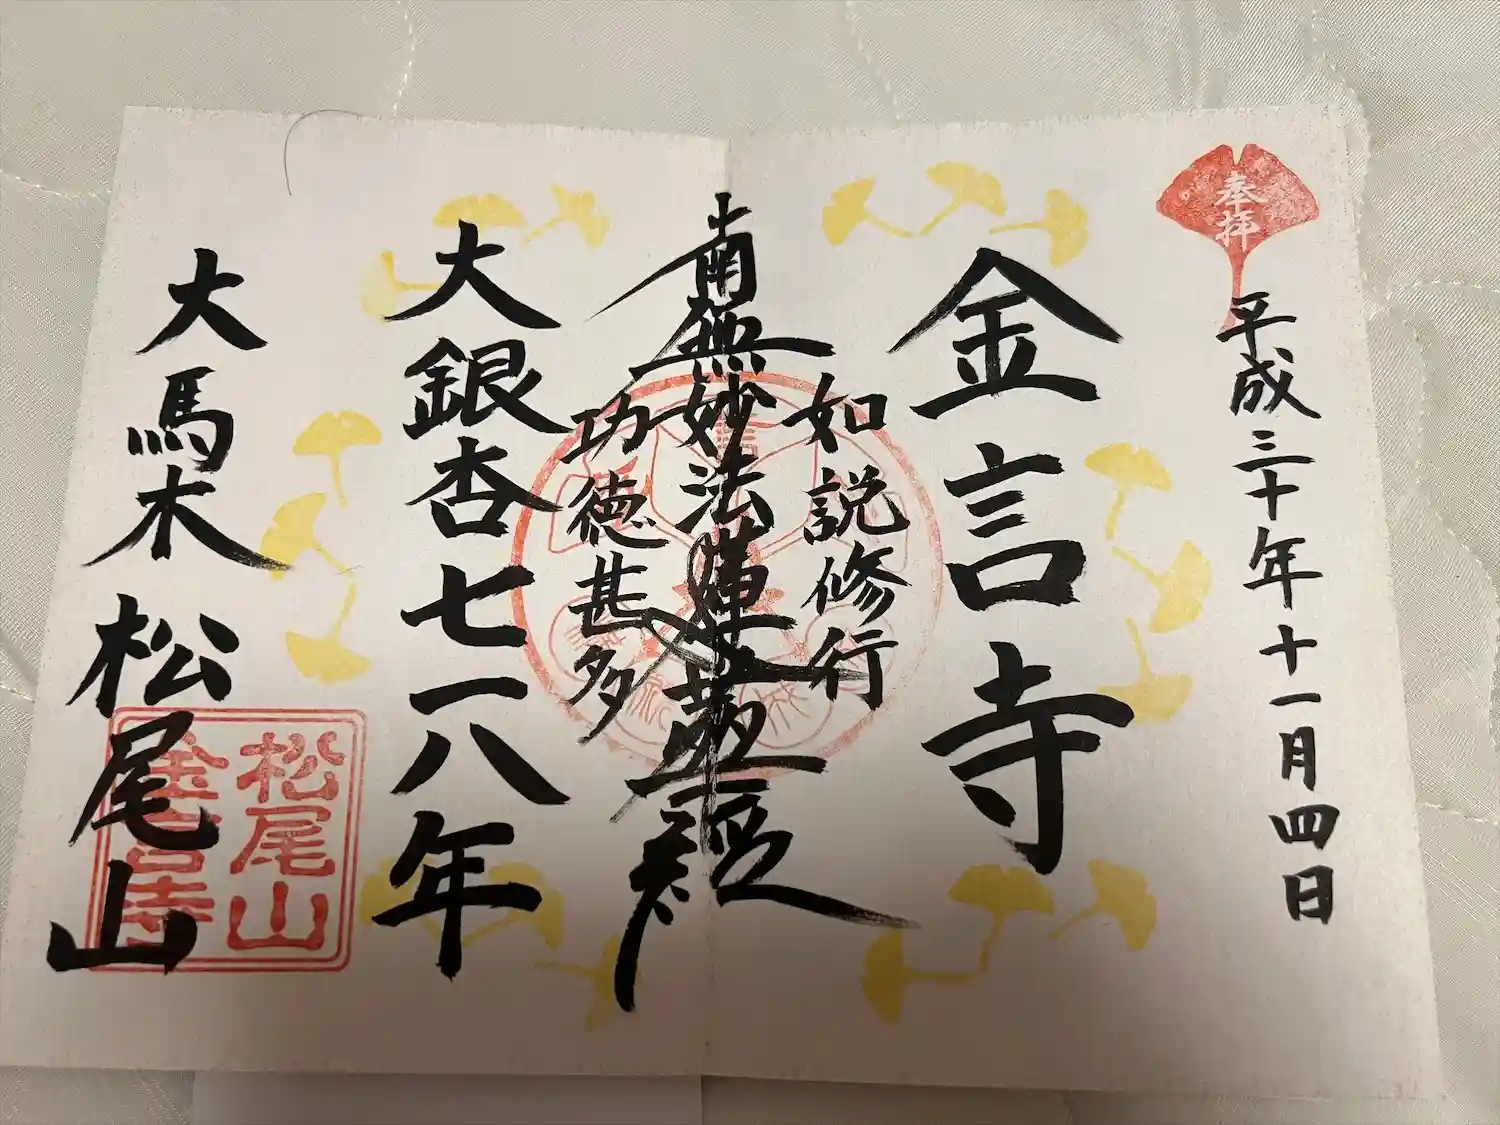 奉拝
平成三十年十一月四日
金言寺
如説修行
南無妙法蓮華経
功徳甚多
大銀杏七一八年
大馬木 松尾山
松尾山
金言寺